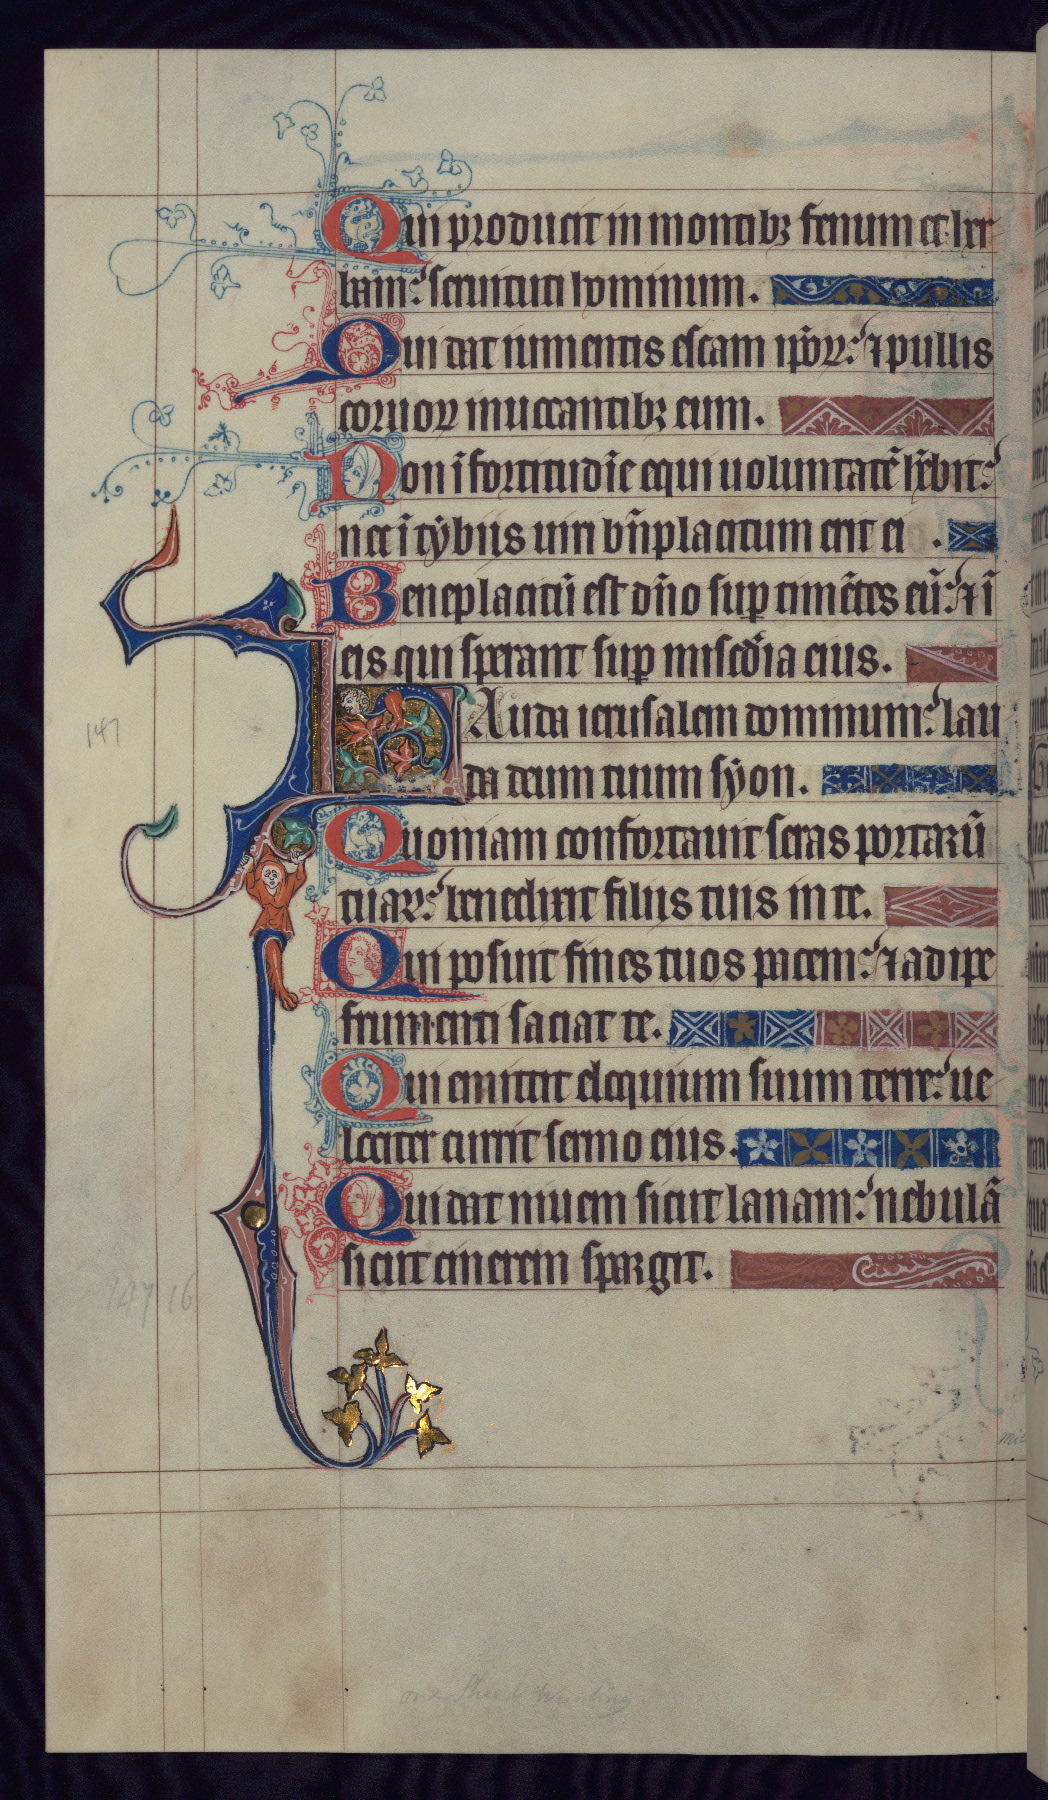 Qui producit in montibꝫ fenum et her
bam: seruituti hominum.
Qui dat iumentis escam ip̄oꝝ: ⁊ pullis
coruoꝝ inuocantibꝫ eum.
Non ī fortitudīe equi uoluntatē hēbit:
nec ī tybiis uiri bn̄placitum erit ei .
Beneplacitū est dn̄o suꝑ timētes eū: ⁊ ī
eis qui sperant suꝑ misc̄dia eius.
147
LAuda ierusalem dominum: lau
da deum tuum syon.
Quoniam confortauit seras portarū
tuaꝝ: benedixit filiis tuis in te.
Qui posuit fines tuos pacem: ⁊ adipe
frumenti saciat te.
Qui emittit eloquium suum terre: ue
lociter currit sermo eius.
Qui dat niuem sicut lanam: nebulā
sicut cinerem spargit.
147 16
one Sheet Wanting.